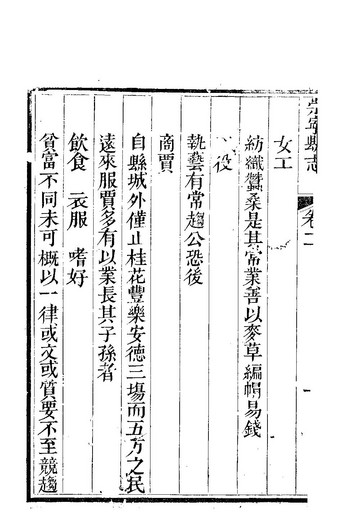 崇寧縣志 卷二
女工
紡織蠶桑是其常業善以麥草編帽易錢
役
執藝有常趨公恐後
商賈
自縣城外僅止桂花豐樂安德三場而五方之民
遠來服賈多有以業長其子孫者
飲食 衣服 嗜好
貧富不同未可概以一律或文或質要不至競趨